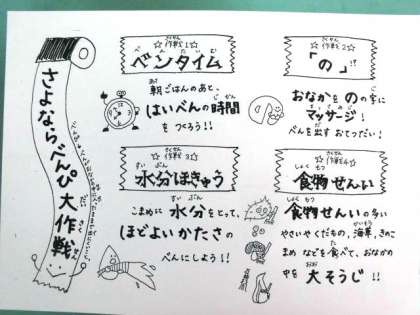 さよならべんぴ大作戦
☆作戦1☆
ベンタイム
朝ごはんのあと、
はいべんの時間
をつくろう!!
☆作戦2☆
「の」!?
おなかを の の字に
マッサージ!
べんを出す おてつだい!
☆作戦3☆
水分ほきゅう
こまめに 水分をとって、
ほどよいかたさの
べんにしよう!!
☆作戦4☆
食物せんい
食物せんいの多い
やさいやくだもの、海草、きのこ
まめ などを食べて、おなかの
中を 大そうじ!!